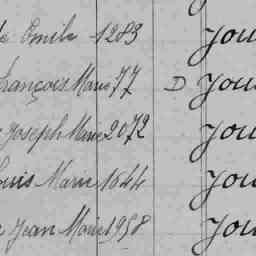 Emile 1283 Jou
François Marie 77 D Jou
Joseph Marie 2072 Jou
Louis Marie 1644 Jou
Jean Marie 1958 Jou